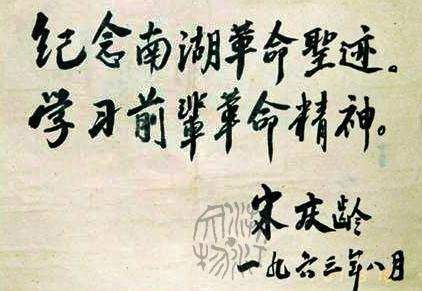 纪念南湖革命聖迹。
学习前辈革命精神。
宋庆龄
一九六三年八月
浙江文物